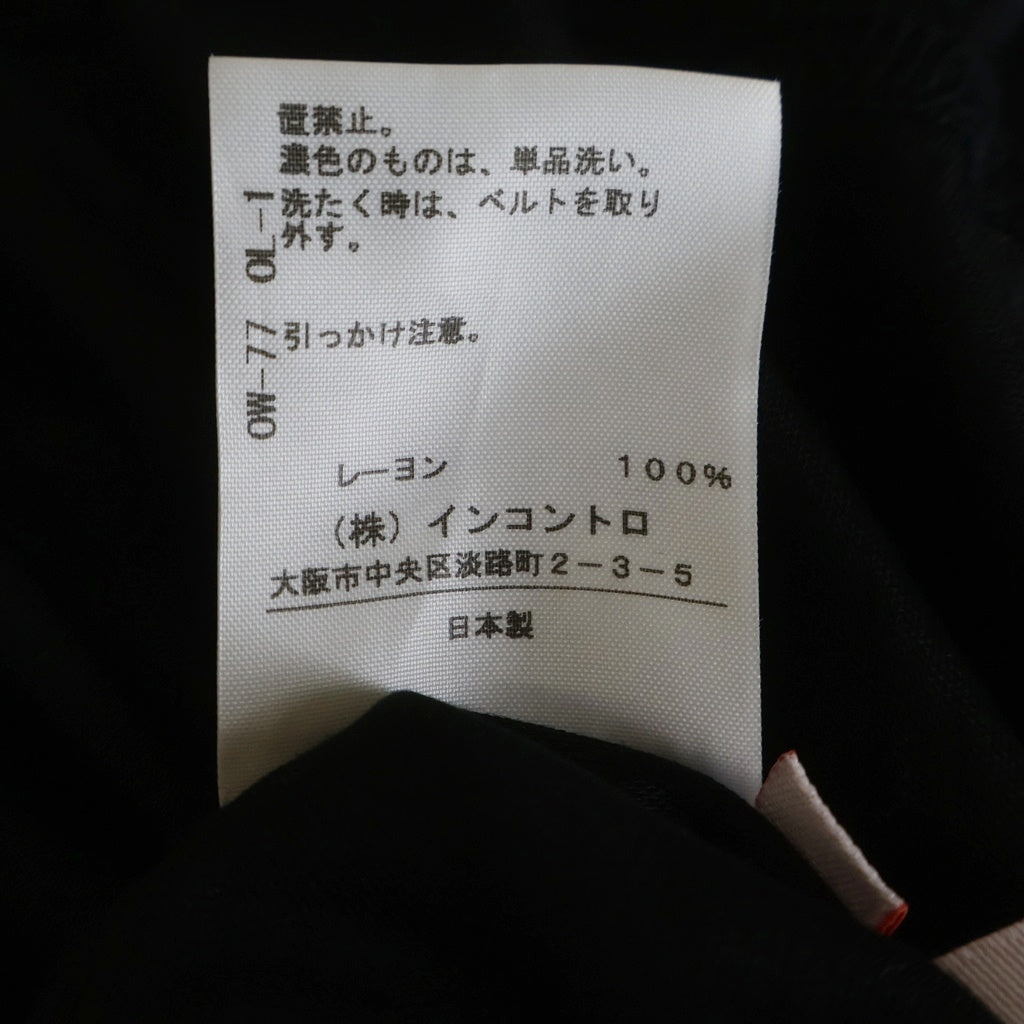 置禁止。
濃色のものは、単品洗い。
洗たく時は、ベルトを取り
外す。
引っかけ注意。
OW-77 OL-1
レーヨン 100%
(株)インコントロ
大阪市中央区淡路町2-3-5
日本製